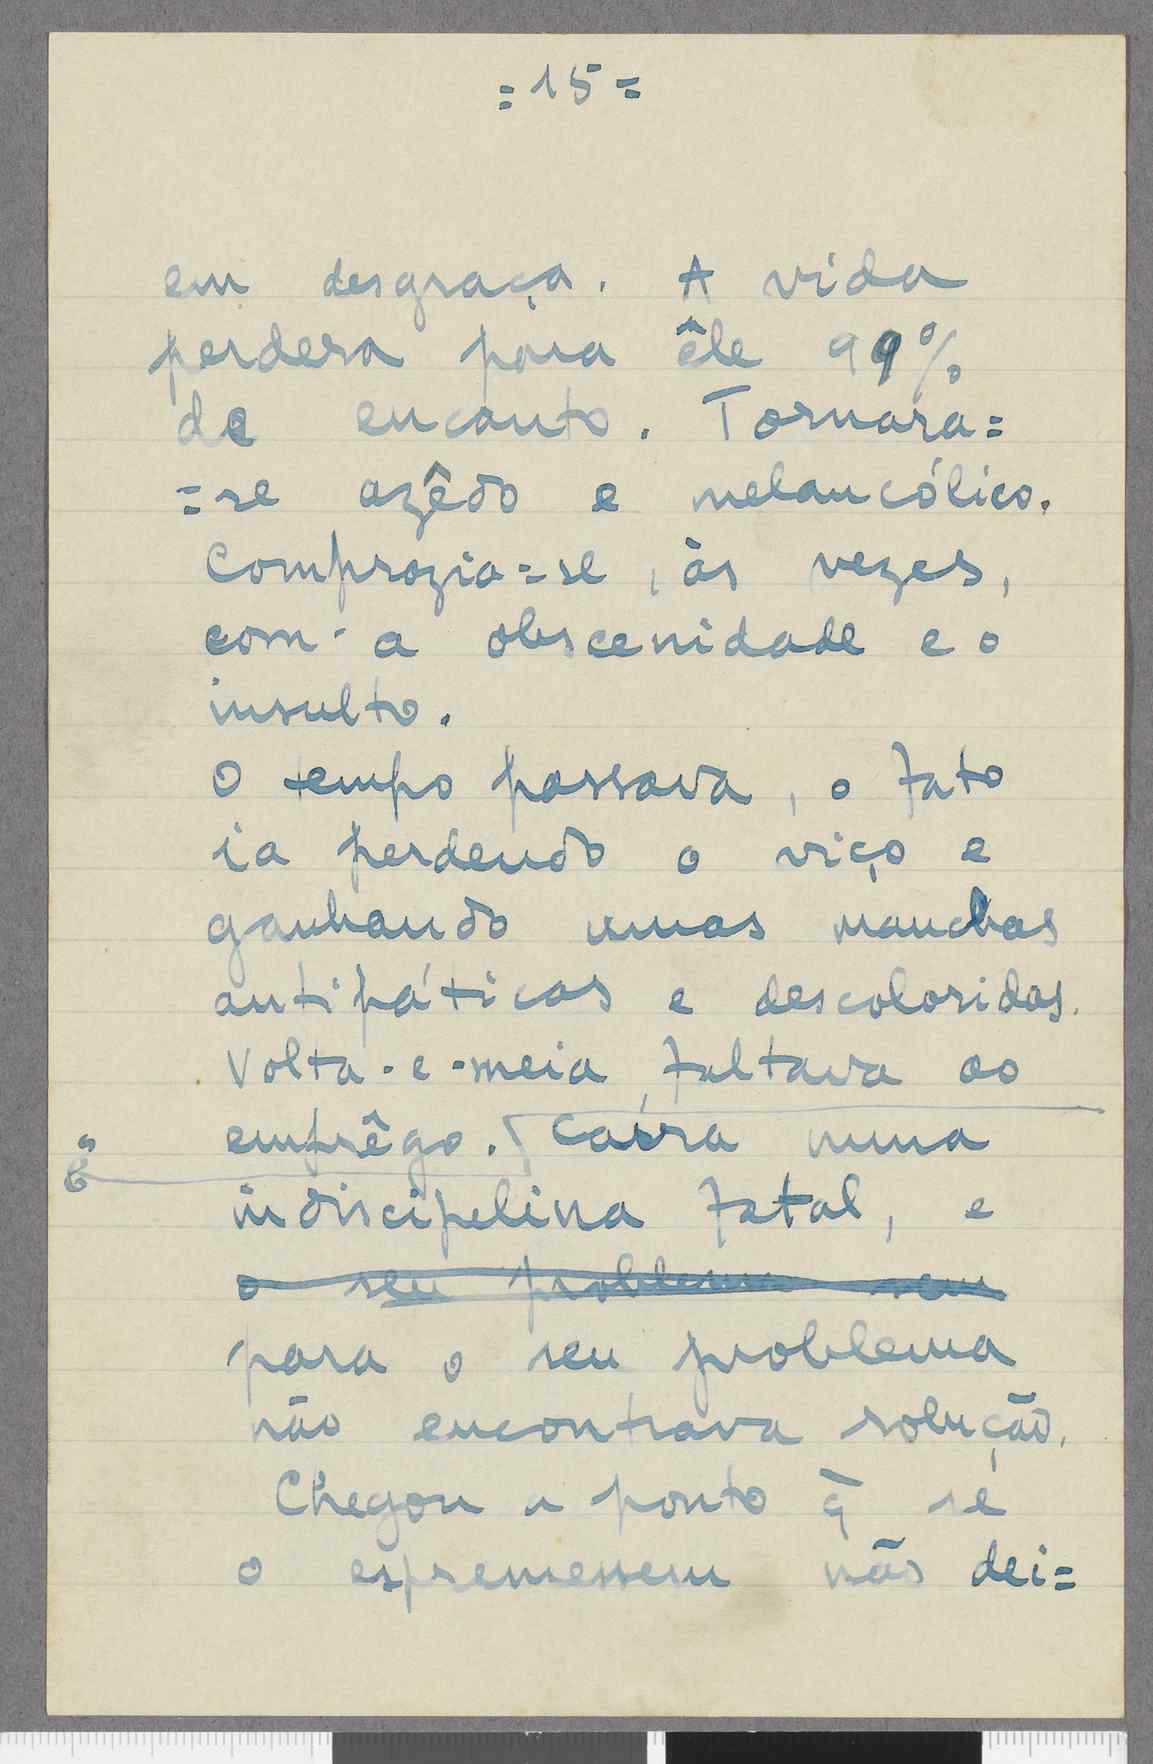 =15=
em desgraça. A vida
perdera para êle 99%
de encanto. Tornara=
=se azêdo e melancólico.
Comprazia=se, às vezes,
com a obscenidade e o
insulto.
O tempo passava, o fato
ia perdendo o viço e
ganhando umas manchas
antipáticas e descoloridas.
Volta-e-meia faltava ao
emprêgo. Caíra numa
indisciplina fatal, e
o seu problema sem
para o seu problema
não encontrava solução.
Chegou a ponto q̃ se
o espremessem não dei=